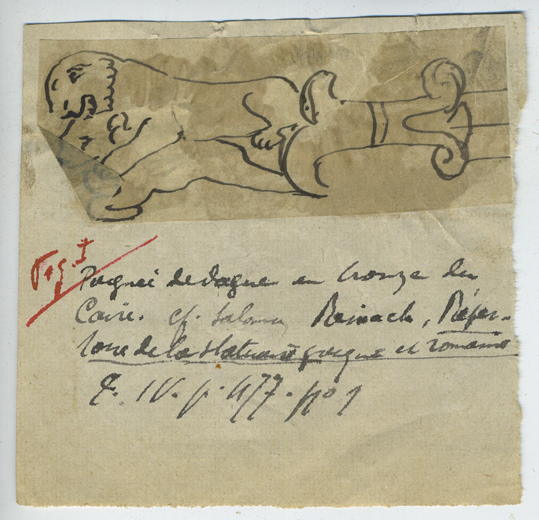 Fig. I
Poignée de dague en bronze du
Caire. cf. Salomon Reinach, Réper-
toire de la statuaire grecque et romaine
T. IV. p. 477. no 1